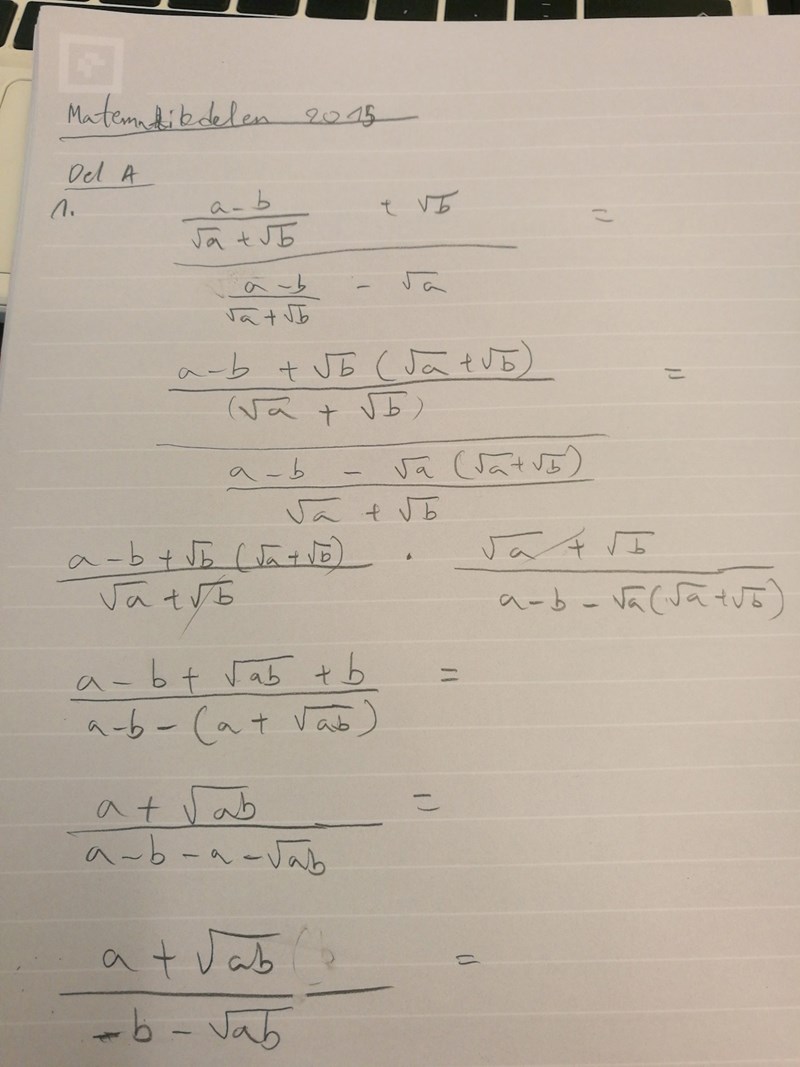 Matematikdelen 2015
Del A
1.
a-b + √b =
√a + √b
a-b - √a
√a + √b
a-b + √b (√a + √b) =
(√a + √b)
a-b - √a (√a+√b)
√a + √b
a-b+√b (√a+√b) · √a + √b
√a + √b a-b-√a(√a+√b)
a-b+ √ab + b =
a-b-(a+ √ab)
a + √ab =
a-b-a-√ab
a + √ab =
-b - √ab